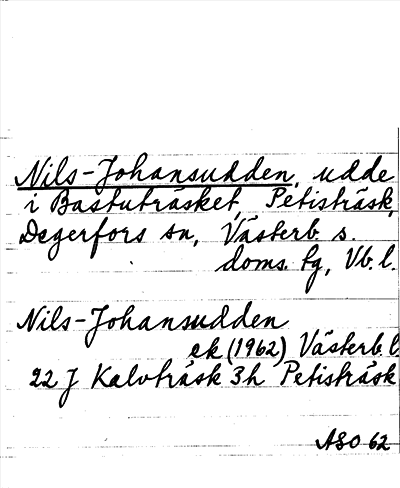 Nils-Johansudden, udde
i Bastuträsket, Petisträsk,
Degerfors sn, Västerb. s.
doms. tg, Vb. l.
Nils-Johansudden
ek (1962) Västerb. l
22 J Kalvträsk 3h Petisträsk
ASO 62